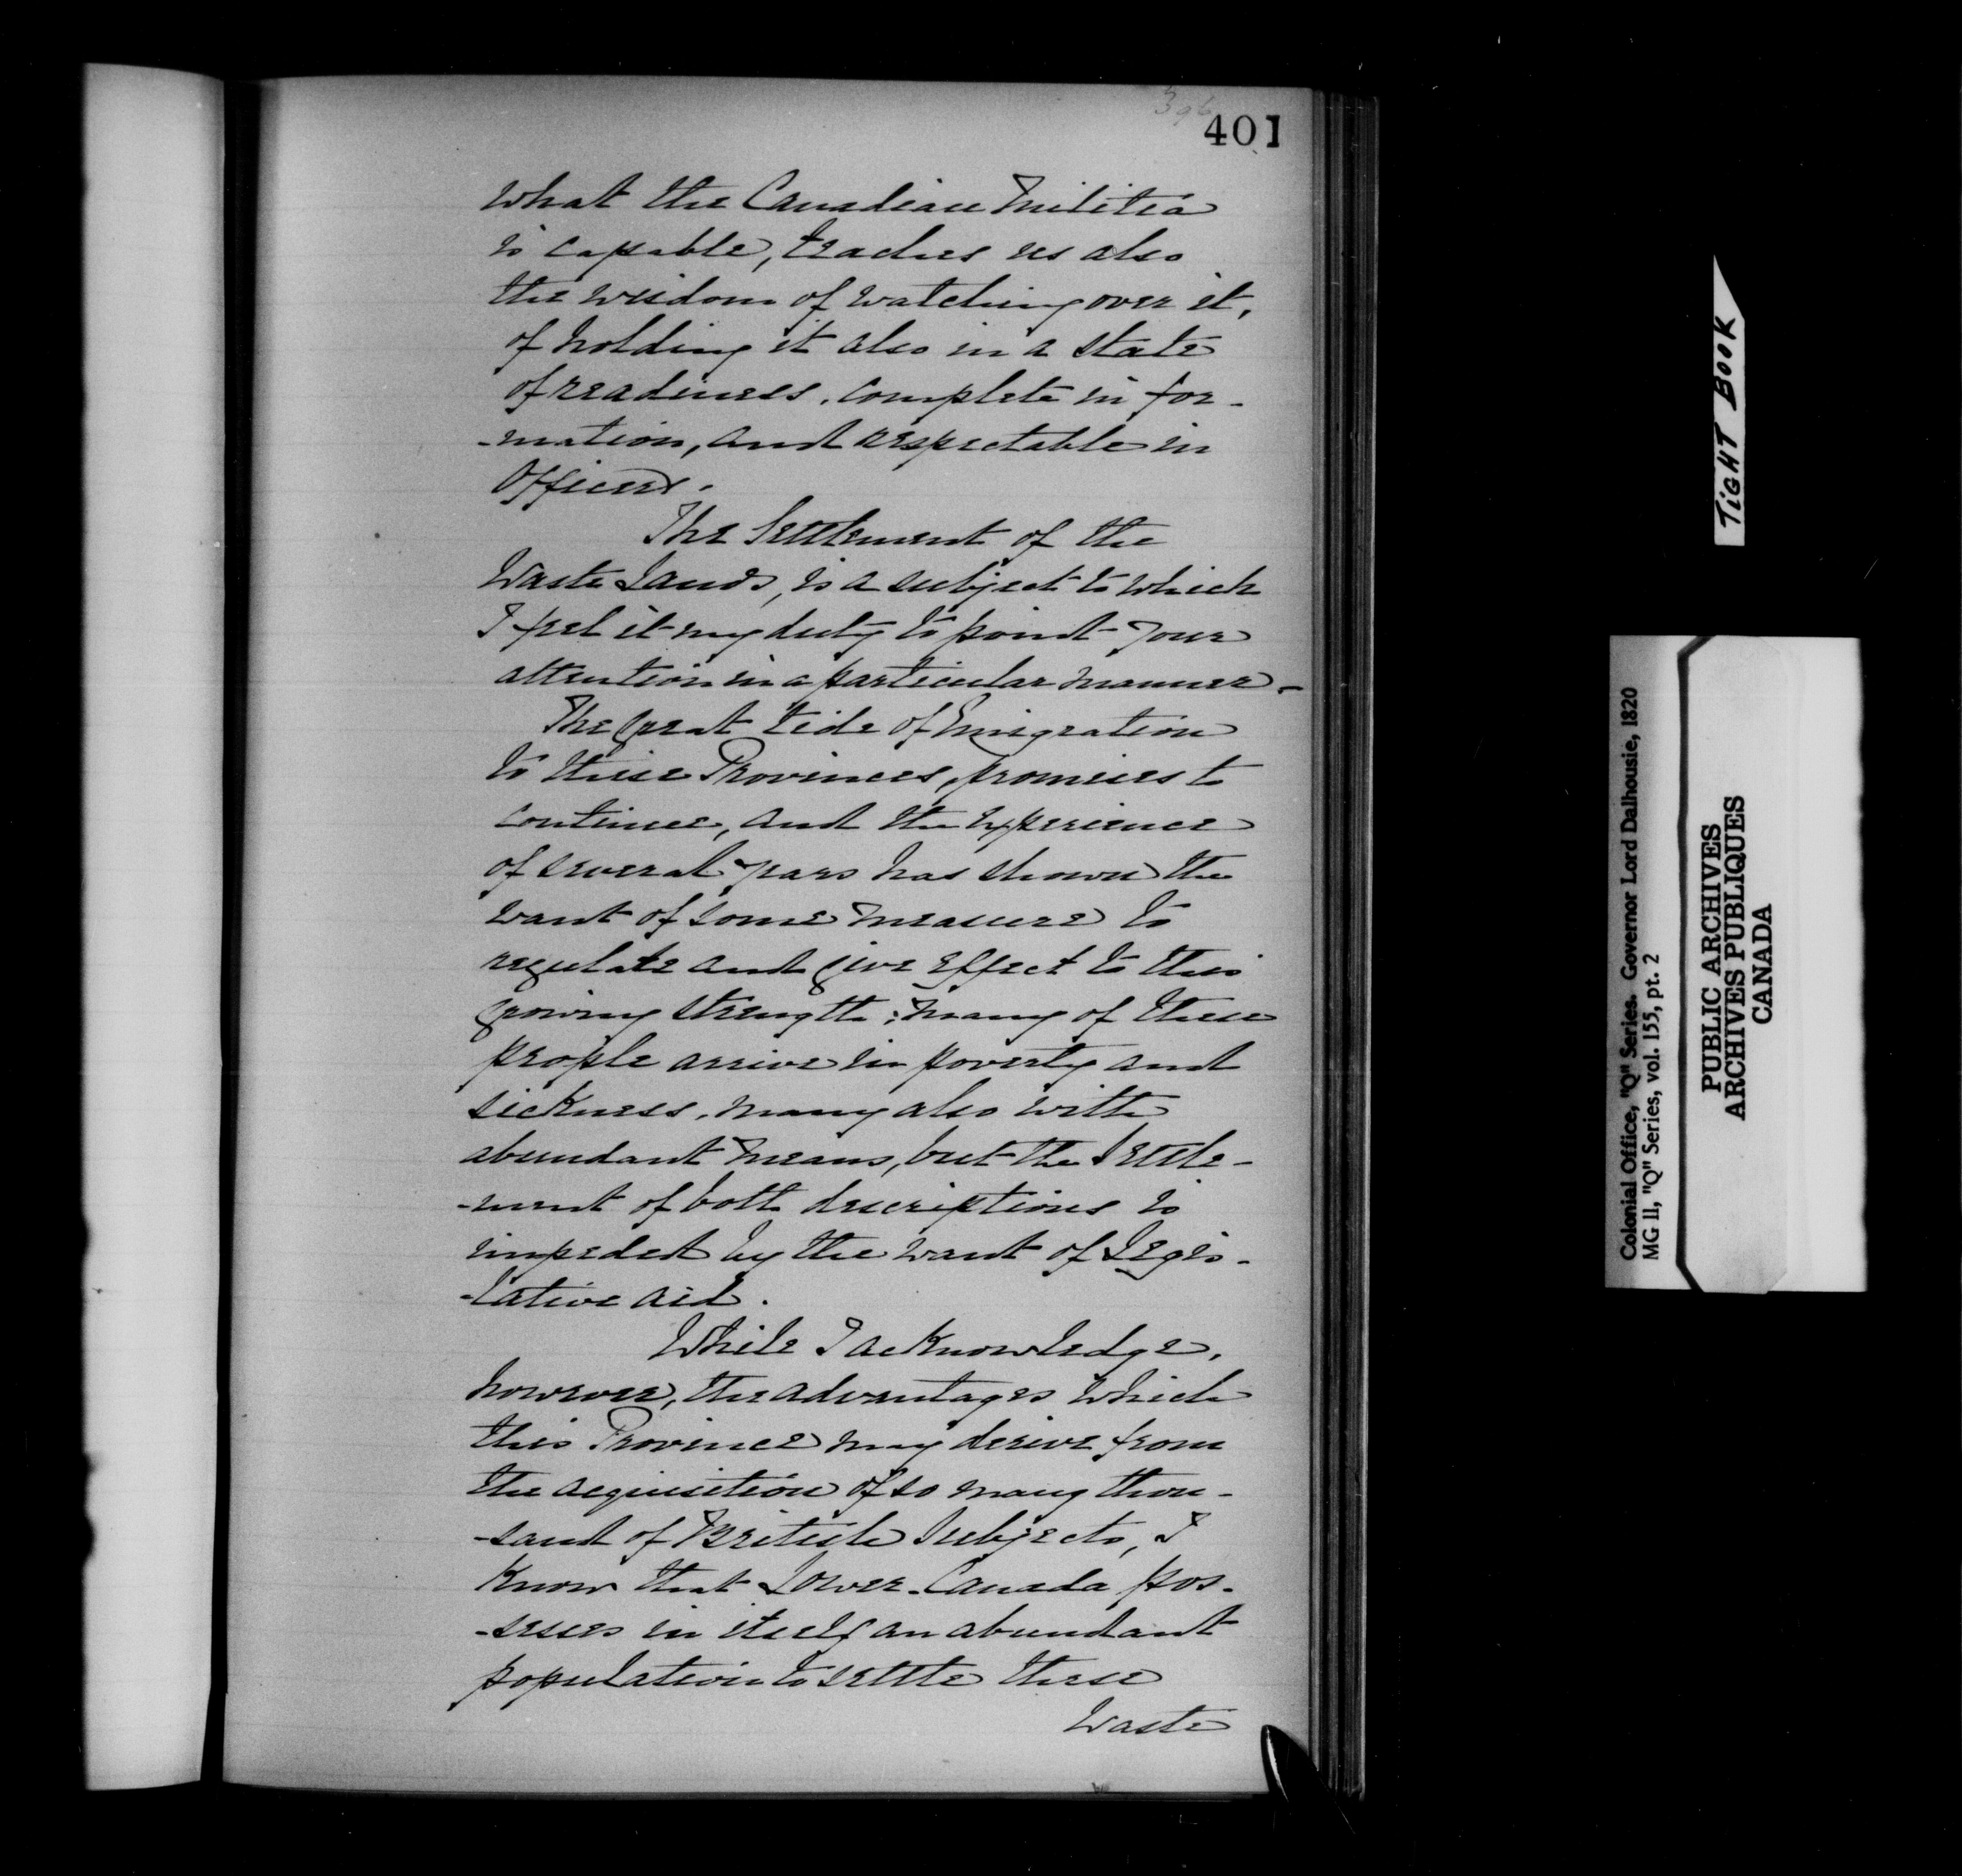 396
401
What the Canadian Militia
is capable, teaches us also
the wisdom of watching over it,
of holding it also in a state
of readiness, complete in for-
-mation, and respectable in
Officers.
The Settlement of the
Waste Lands, is a subject to which
I feel it my duty to point your
attention in a particular manner.-
The great tide of Emigration
to these Provinces, promises to
continue, and the experience
of several years has shown the
want of some measure to
regulate and give effect to this
growing strength; many of these
people arrive in poverty and
sickness, many also with
abundant means, but the Settle-
-ment of both descriptions is
impeded by the want of Legis-
-lative aid.
While I acknowledge,
however, the advantages which
this Province may derive from
the acquisition of so many thou-
-sand of British Subjects, I
Know that Lower-Canada pos-
-sesses in itself an abundant
population to settle these
Waste
TIGHT BOOK
Colonial Office, "Q" Series. Governor Lord Dalhousie, 1820
MG 11, "Q" Series, vol. 155, pt. 2
PUBLIC ARCHIVES
ARCHIVES PUBLIQUES
CANADA